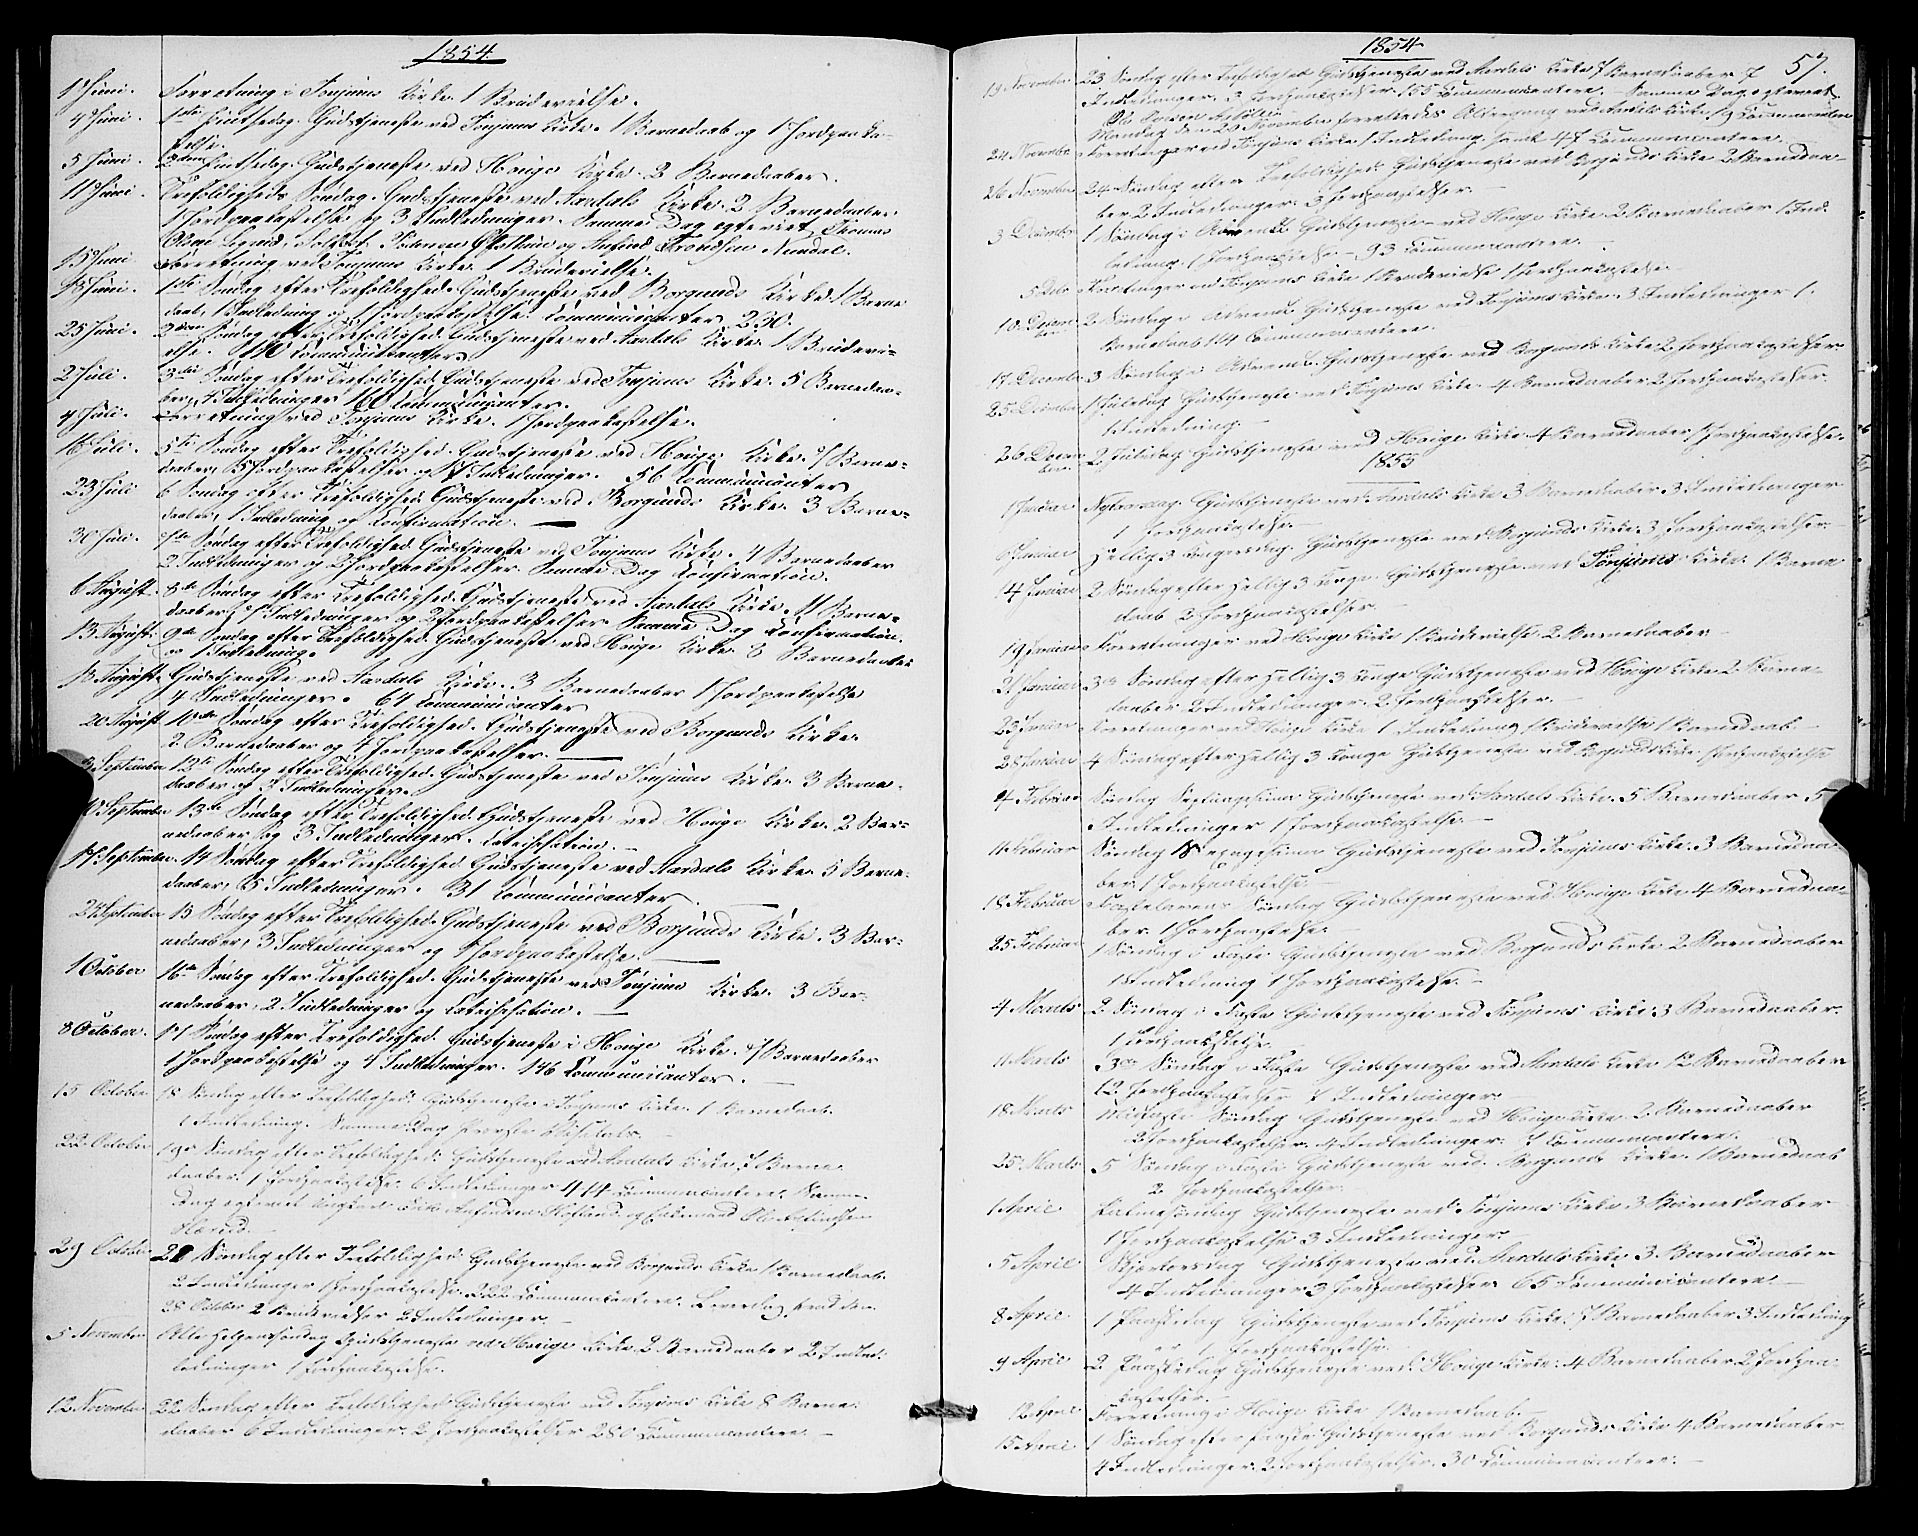 1854.
1 Juni. Forretning i Tonjums Kirke. 1 Brudevielse.
4 Juni. 1ste Pintsedag. Gudstjeneste ved Tonjums Kirke. 1 Barnedaab og 1 Jordpaaka-
stelse.
5 Juni. 2den Pintsedag. Gudstjeneste ved Houge Kirke. 2 Barnedaaber.
11 Juni. Trefoldigheds Søndag. Gudstjeneste ved Aardals Kirke. 2 Barnedaaber.
1 Jordpaakastelse og 3 Indledninger. Samme Dag egteviet Thomas
og Trondsen Nundal.
15 Juni Forretning ved Tonjums Kirke. 1 Brudevielse.
18 Juni. 1ste Søndag efter Trefoldighed. Gudstjeneste ved Borgunds Kirke. 1 Barne
daab, 1 Indledning og 1 Jordpaakastelse. Communicanter 230.
25 Juni. 2den Søndag efter Trefoldighed. Gudstjeneste ved Aardals Kirke. 1 Brudevi-
else. 140 Communicanter.
2 Juli. 3die Søndag efter Trefoldighed. Gudstjeneste ved Tonjums Kirke. 5 Barnedaa-
ber, Indledninger 160 Communicanter.
4 Juli. Forretning ved Tonjums Kirke. 1 Jordpaakastelse.
16 Juli. 5te Søndag efter Trefoldighed. Gudstjeneste ved Houge Kirke. 7 Barne-
daaber, Jordpaakastelser og Indledninger. 56 Communicanter
23 Juli 6 Søndag efter Trefoldighed. Gudstjeneste ved Borgunds Kirke. 3 Barne-
daaber, 1 Indledning og Confirmation.
30 Juli. 7de Søndag efter Trefoldighed. Gudstjeneste ved Tonjums Kirke. 4 Barnedaaber
2 Indledninger og 2 Jordpaakastelser. Samme Dag Confirmation.
6 August. 8de Søndag efter Trefoldighed. Gudstjeneste ved Aardals Kirke. 11 Barne-
daaber, Indledninger og 2 Jordpaakastelser. Samme Dag Confirmation.
13 August. 9de Søndag efter Trefoldighed. Gudstjeneste ved Houge Kirke. 8 Barnedaaber
og 1 Indledning.
August. Gudstjeneste ved Aardals Kirke. 3 Barnedaaber 1 Jordpaakastelse
4 Indledninger. 64 Communicanter
20 August 10de Søndag efter Trefoldighed. Gudstjeneste ved Borgunds Kirke.
2 Barnedaaber og 4 Jordpaakastelser.
3 September 12te Søndag efter Trefoldighed. Gudstjeneste ved Tonjums Kirke. 3 Barne-
daaber og 3 Indledninger.
10 September 13de Søndag efter Trefoldighed. Gudstjeneste ved Houge Kirke. 2 Bar-
nedaaber og 3 Indledninger. Catechisation.
17 September. 14 Søndag efter Trefoldighed. Gudstjeneste ved Aardals Kirke. 5 Barne-
daaber, 5 Indledninger. 31 Communicanter
24 September 15 Søndag efter Trefoldighed. Gudstjeneste ved Borgunds Kirke. 3 Bar-
nedaaber, 3 Indledninger og 1 Jordpaakastelse.
1 October 16de Søndag efter Trefoldighed. Gudstjeneste ved Tonjums Kirke. 3 Bar-
nedaaber, 2 Indledninger og Catechisation.
8 October. 17 Søndag efter Trefoldighed. Gudstjeneste i Houge Kirke. 7 Barnedaaber
1 Jordpaakastelse og 4 Indledninger. 146 Communicanter.
15 October 18 Søndag efter Trefoldighed. Gudstjeneste i Tonjums Kirke. 1 Barnedaab.
1 Indledning. Samme Dag
22 October 19de Søndag efter Trefoldighed. Gudstjeneste ved Aardals Kirke. 7 Barne
daaber. 1 Jordpaakastelse. 6 Indledninger 44 Communicantere. Samme
Dag egteviet
29 October Søndag efter Trefoldighed. Gudstjeneste ved Borgunds Kirke 1 Barnedaab.
2 Indledninger 1 Jordpaakastelse. 222 Communicantere. Løverdag
28 October 2 Brudevielser 2 Indledninger.
5 November Alle Helgens Søndag Gudstjeneste ved Houge Kirke. 2 Barnedaaber 2 Indled-
ledninger 1 Jordpaakastelse.
12 November 22 Søndag efter Trefoldighed Gudstjeneste ved Tonjums Kirke 8 Barne-
daaber 6 Indledninger. 2 Jordpaakastelser 280 Communicantere.
1854
57.
19 November 23 Søndag efter Trefoldighed Gudstjeneste ved Aardals Kirke 7 Barnedaaber 7
Indledninger. 3 Jordpaakastelser. 155 Communicantere. Samme Dag egteviet
Mandag den 20 November forrettedes Altergang ved Aardals Kirke. 19 Communicantere
24 November Forretninger ved Tonjums Kirke 1 Indledning samt 47 Communicantere.
26 November 24 Søndag efter Trefoldighed: Gudstjeneste ved Borgunds Kirke 2 Barnedaa-
ber 2 Indledninger. 3 Jordpaakastelser.
3 December 1 Søndag i Advent Gudstjeneste ved Houge Kirke. 2 Barnedaaber 1 Ind-
ledning. 1 Jordpaakastelse. 93 Communicantere.
5 Forretninger ved Tonjums Kirke 1 Brudevielse 1 Jordpaakastelse
10 Decem-
ber 2 Søndag i Advent Gudstjeneste ved Tonjums Kirke. 3 Indledninger 1
Barnedaab 114 Communicantere.
17 December 3 Søndag i Advent. Gudstjeneste ved Borgunds Kirke. 2 Jordpaakastelser.
25 December 1 Juledag Gudstjeneste ved Tonjums Kirke. 4 Barnedaaber. 2 Jordpaakastelser.
1 Indledning.
26 Decem-
ber 2 Juledag Gudstjeneste ved Houge Kirke 4 Barnedaaber 1 Jordpaakastelse.
1855
1 Januar Nytaarsdag Gudstjeneste ved Aardals Kirke 3 Barnedaaber 3 Indledninger
1 Jordpaakastelse.
6 Januar Hellig 3 Kongersdag. Gudstjeneste ved Borgunds Kirke. 3 Jordpaakastelser.
14 Januar 2 Søndag efter Hellig 3 Konge. Gudstjeneste ved Tonjums Kirke. 1 Barne
daab 2 Jordpaakastelser.
19 Januar Forretninger ved Houge Kirke 1 Brudevielse. 2 Barnedaaber
21 Januar 3de Søndag efter Hellig 3 Konge Gudstjeneste ved Houge Kirke 2 Barne-
daaber 2 Indledninger. 2 Jordpaakastelser.
25 Januar Forretninger ved Houge Kirke 1 Indledning 1 Brudevielse 1 Barnedaab
28 Januar 4 Søndag efter Hellig 3 Konge Gudstjeneste ved Borgunds Kirke. 1 Jordpaakastelse
4 Februar Søndag Septuagesima Gudstjeneste ved Aardals Kirke. 5 Barnedaaber 5
Indledninger 1 Jordpaakastelse.
11 Februar Søndag Sexagesima Gudstjeneste ved Tonjums Kirke. 3 Barnedaa-
ber 1 Jordpaakastelse.
18 Februar Fastelavens Søndag Gudstjeneste ved Houge Kirke 4 Barnedaa-
ber. 1 Jordpaakastelse.
25 Februar 1 Søndag i Faste Gudstjeneste ved Borgunds Kirke 2 Barnedaaber
1 Indledning 1 Jordpaakastelse.
4 Marts 2 Søndag i Faste Gudstjeneste ved Tonjums Kirke. 3 Barnedaaber.
1 Jordpaakastelse.
11 Marts 3die Søndag i Faste Gudstjeneste ved Aardals Kirke 12 Barnedaaber
12 Jordpaakastelser 7 Indledninger
18 Marts Midfaste Søndag Gudstjeneste ved Houge Kirke 2 Barnedaaber
2 Jordpaakastelser. 4 Indledninger. 7 Communicantere.
25 Marts 5 Søndag i Faste Gudstjeneste ved Borgunds Kirke. 1 Barnedaab
2 Jordpaakastelser.
1 April Palmesøndag Gudstjeneste ved Tonjums Kirke 3 Barnedaaber
1 Jordpaakastelse 3 Indledninger
5 April Skjertorsdag Gudstjeneste ved Aardals Kirke 3 Barnedaaber
4 Indledninger 3 Jordpaakastelser 65 Communicantere.
8 April 1 Paaskedag Gudstjeneste ved Tonjums Kirke. 7 Barnedaaber 3 Indledning
er 1 Jordpaakastelse.
9 April 2 Paaskedag Gudstjeneste ved Houge Kirke. 4 Barnedaaber. 2 Jordpaa-
kastelser.
12 April Forretning i Houge Kirke 1 Barnedaab.
15 April 1 Søndag efter Paaske Gudstjeneste ved Borgunds Kirke 4 Barnedaaber
4 Indledninger. 2 Jordpaakastelser. 30 Communicantere.